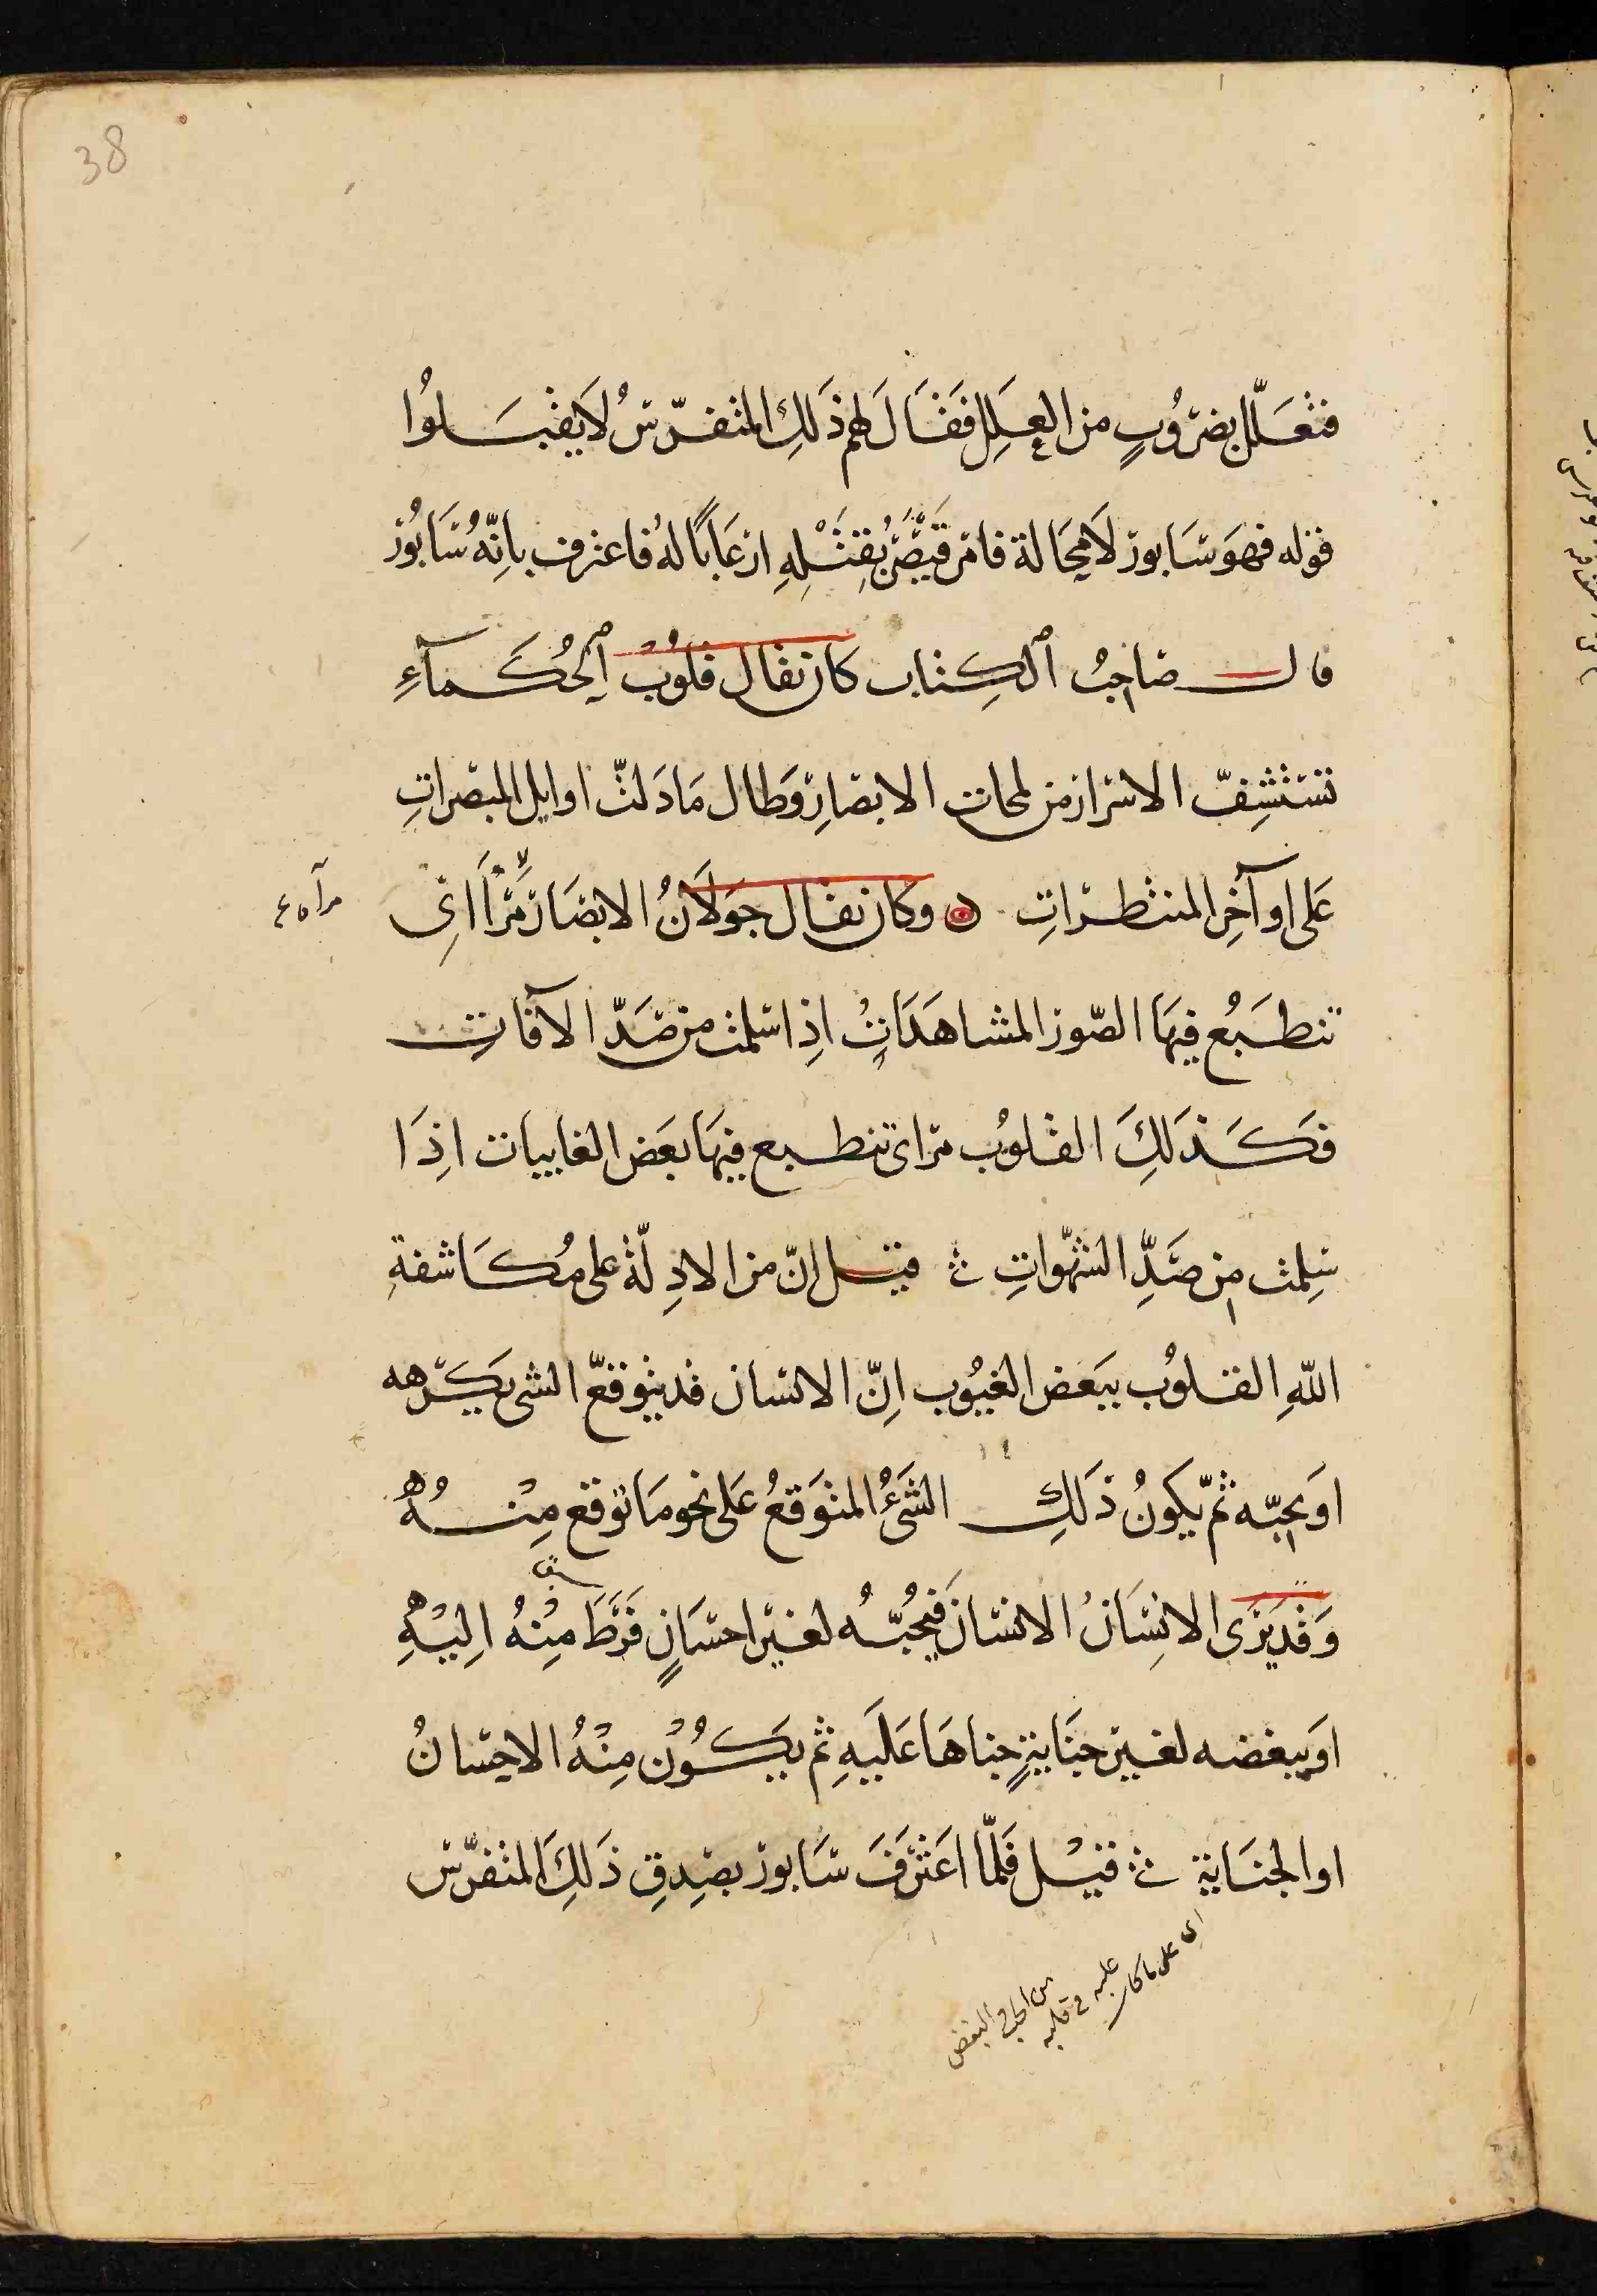 38
فتعلّل بضروبٍ من العِلَلِ فَقَالَ لهم ذَلِكَ المتفرّسُ لَا يقبَلُوا
قوله فهوَ سَابور لَا محَالة فامر قَيصَرُ بِقتْلِهِ ارعَابًا لهُ فاعترف بانّهُ سَابُور
قال صَاحِبُ الكِتاب كان يقال قلُوبُ الحُكَمآءِ
تستشِفّ الاسرار من لمحات الابصارِ وَطال مَا دَلتّ اوايل المبصراتِ
عَلى اوآخِرِ المنتظراتِ ۞ وكان يقال جَوَلَانُ الابصَار مَرَااى
مرآة ع
تنطبَعُ فيهَا الصّور المشاهَدَاتُ اذِا سلمت من صَدَّ الآفاتِ
فكَذلِكَ القلوُب مراى تنطبع فيهَا بعَض الغايبات اذِ َا
سَلِمت مِن صَدَّ الشهّواتِ قيل انّ من الادِلّة على مُكَاشفةِ
اللهِ القلوُب ببَعض الغيُوب اِنّ الانسان قد يتوقعّ الشى يَكرهه
اوَ يحبّه ثم يكونُ ذَلِكَ الشَىُٔ المتوَقعُ عَلى نحو مَا توقع مِنْهُ
وَقد يَرَى الانِسَانُ الانسَانَ فيُحبّهُ لغير احسَانٍ فَرَطَ مِنْهُ الِيْهِ
سبق
اوَ يبغضه لغير جنَايةٍ جناهَا عَليَهِ ثم يكُوْن مِنْهُ الاحِسَانُ
او الجنَاية قيْل فَلمّا اعَترَفَ سَابور بصِدِقِ ذَلِكَ المتفرّس
اى على ما كان عليه فى قلبه من الحب والبغض